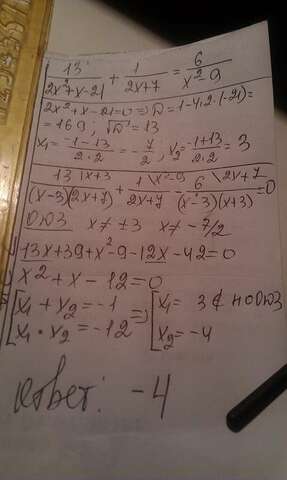 13/(2x²+x-21) + 1/(2x+7) = 6/(x²-9)
2x²+x-21=0 => D=1-4·2·(-21)=
=169; √D=13
x₁=(-1-13)/(2·2)=-7/2; x₂=(-1+13)/(2·2)=3
13\x+3/((x-3)(2x+7)) + 1\x²-9/(2x+7) - 6\2x+7/((x-3)(x+3))=0
ОДЗ x≠±3 x≠-7/2
13x+39+x²-9-12x-42=0
x²+x-12=0
[x₁+x₂=-1 => [x₁=3 ∉ по ОДЗ
x₁·x₂=-12 x₂=-4
ответ: -4